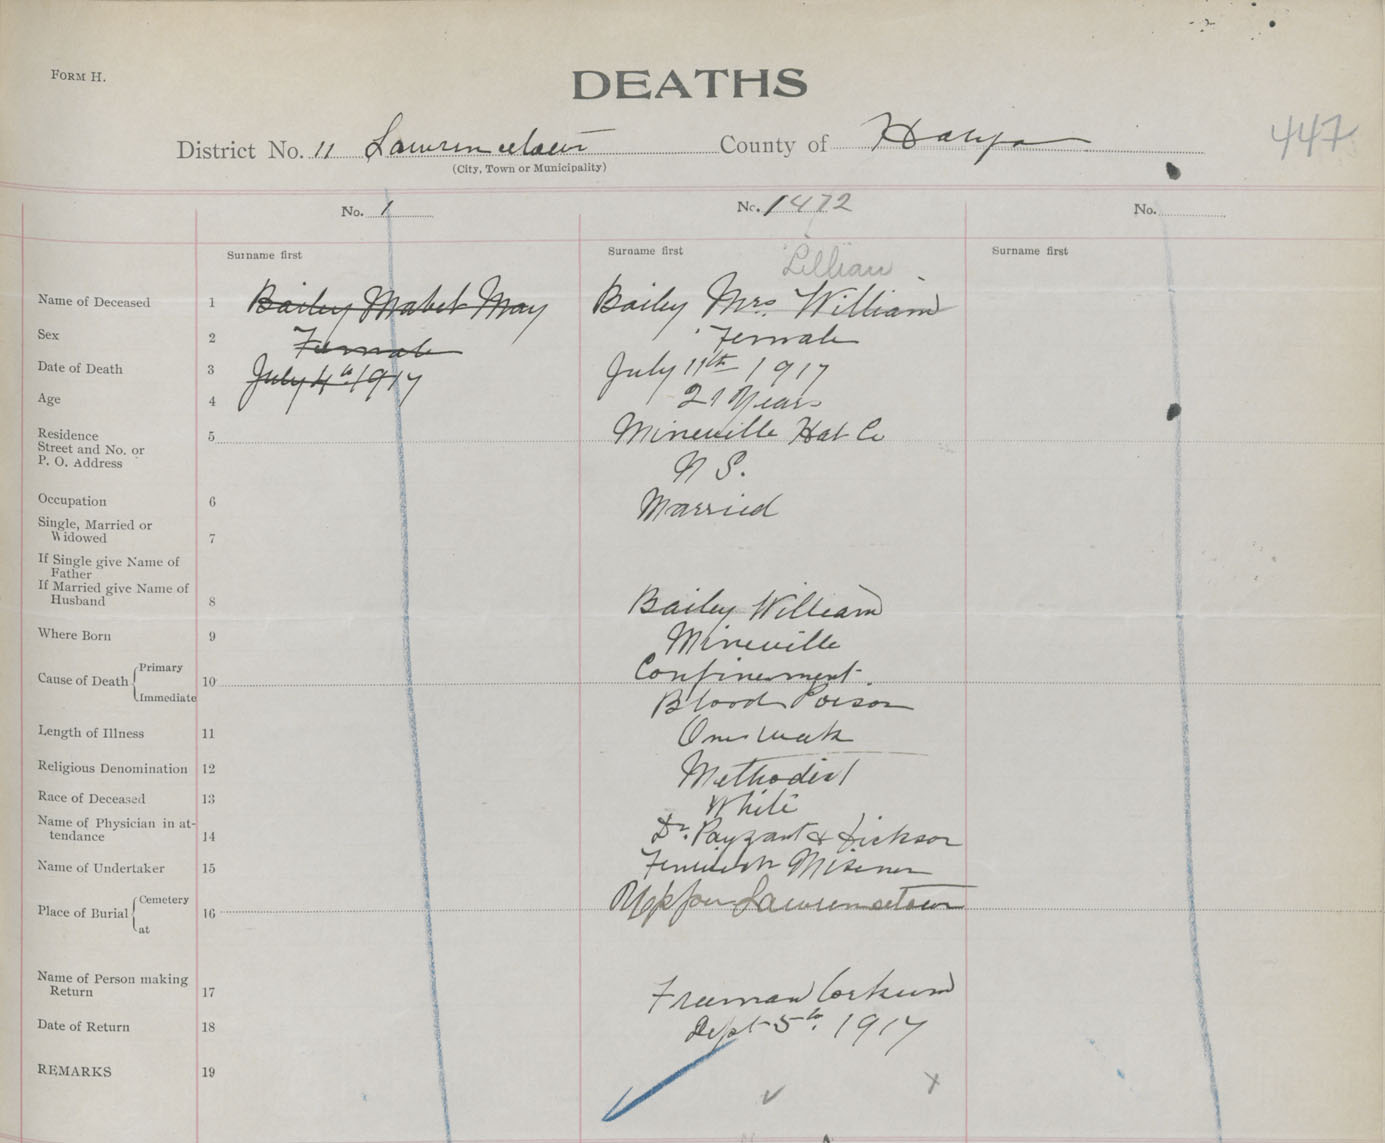 FORM H.
DEATHS
447
District No. 11 Lawrencetown County of Halifax
(City, Town or Municipality)
No. 1
No. 1472
No.
Surname first
Surname first
Surname first
Lillian
Name of Deceased 1 Bailey Mabel May Bailey Mrs. William
Sex 2 Female Female
Date of Death 3 July 4th 1917 July 11th 1917
Age 4 21 Years
Residence 5 Mineville Hal Co
Street and No. or
P. O. Address N S.
Occupation 6 Married
Single, Married or
Widowed 7
If Single give Name of
Father
If Married give Name of
Husband 8 Bailey William
Where Born 9 Mineville
Cause of Death Primary 10 Confinement.
Immediate Blood Poison
Length of Illness 11 One week
Religious Denomination 12 Methodist
Race of Deceased 13 White
Name of Physician in at-
tendance 14 Dr. Payzant & Dickson
Name of Undertaker 15 Misener
Place of Burial Cemetery 16 Upper Lawrencetown
at
Name of Person making
Return 17 Freeman Corkum
Date of Return 18 Sept 5th. 1917
REMARKS 19